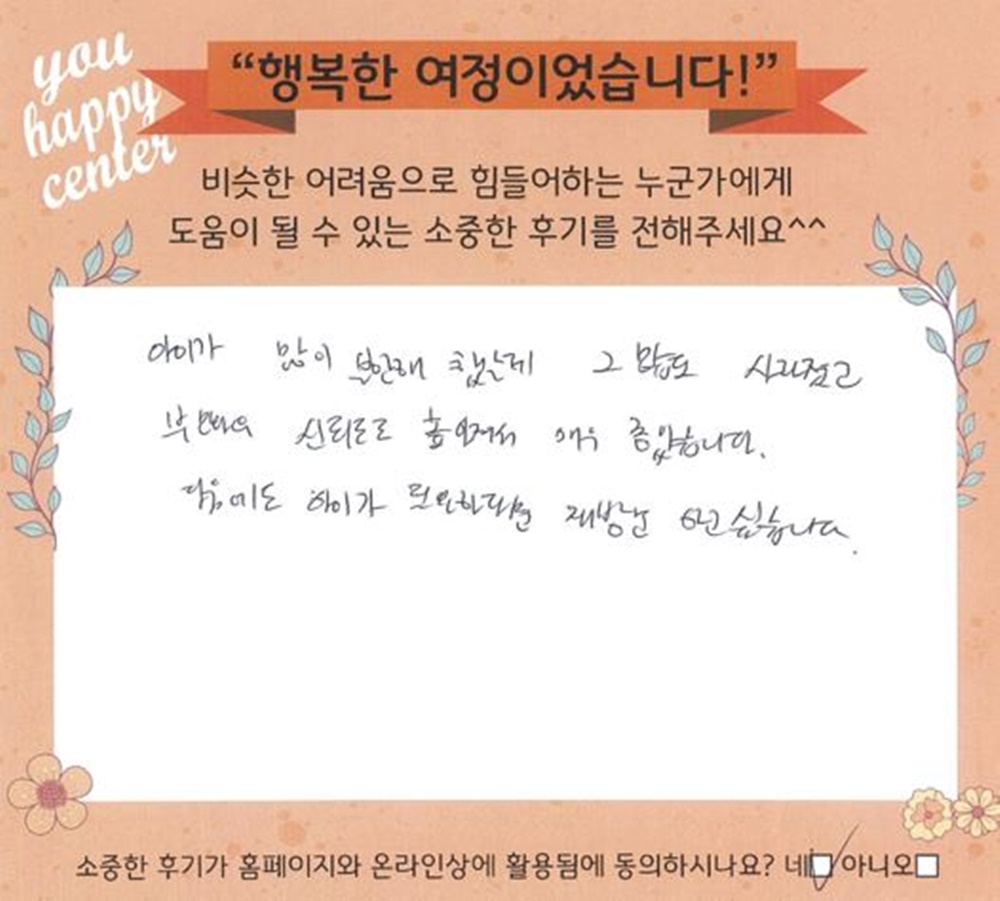 you
happy
center
“행복한 여정이었습니다!”
비슷한 어려움으로 힘들어하는 누군가에게
도움이 될 수 있는 소중한 후기를 전해주세요^^
아이가 많이 불안해 했는데 그 맘도 사라졌고
부모와의 신뢰도도 높아져서 매우 좋았습니다.
다음에도 아이가 필요하다면 재방문 하고싶습니다.
소중한 후기가 홈페이지와 온라인상에 활용됨에 동의하시나요? 네 아니오